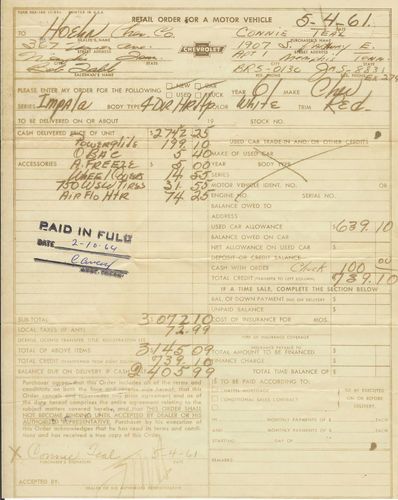 RETAIL ORDER FOR A MOTOR VEHICLE
5-4-61
TO Hoehn Chev. Co.
DEALER'S NAME
CHEVROLET
CONNIE TEAL
PURCHASER'S NAME
STREET
CITY
STATE
SALESMAN'S NAME
Memphis Tenn.
BR5-0130
PLEASE ENTER MY ORDER FOR THE FOLLOWING
NEW
CAR
USED
TRUCK
YEAR 61
Chev
SERIES Impala
BODY TYPE 4 DR HR/Hp
White
Red
TO BE DELIVERED ON OR ABOUT
19
STOCK NO.
CASH DELIVERED PRICE OF UNIT
$ 2742 25
USED CAR TRADE-IN AND/OR OTHER CREDITS
Powerglide 199 10
MAKE OF USED CAR
O B & C 5 40
YEAR
BODY TYPE
ACCESSORIES
A. FREEZE 5 00
MODEL
WHEEL Covers 14 55
MOTOR VEHICLE IDENT. NO.
750 WSW TIRES 31 55
ENGINE NO.
SERIAL NO.
AIR Flo HTR 74 25
BALANCE OWED TO
ADDRESS
PAID IN FULL
DATE 2-10-64
USED CAR ALLOWANCE
$639.10
BALANCE OWED ON USED CAR
NET ALLOWANCE ON USED CAR
DEPOSIT OR CREDIT BALANCE
CASH WITH ORDER Check 100 00
TOTAL CREDIT (TRANSFER TO LEFT COLUMN)
739.10
IF A TIME SALE, COMPLETE THE SECTION BELOW
BAL. OF DOWN PAYMENT DUE ON DELIVERY
UNPAID BALANCE
SUB TOTAL
3072 10
COST OF INSURANCE FOR
MOS.
LOCAL TAXES (IF ANY)
72.99
LICENSE, LICENSE TRANSFER, TITLE, REGISTRATION FEE
TYPE OF INSURANCE COVERAGE
TOTAL OF ABOVE ITEMS
3145 09
TOTAL AMOUNT TO BE FINANCED
TOTAL CREDIT (TRANSFERRED FROM RIGHT COLUMN)
739 10
FINANCE CHARGE
BALANCE DUE ON DELIVERY
2405 99
TOTAL TIME BALANCE OF
Purchaser agrees that this Order includes all of the terms and
conditions on both the face and reverse side hereof, that this
Order cancels and supersedes any prior agreement and as of the
date hereof comprises the entire agreement relating to the
subject matters covered hereby, and that THIS ORDER SHALL
NOT BECOME BINDING UNTIL ACCEPTED BY DEALER OR HIS
AUTHORIZED REPRESENTATIVE. Purchaser by his execution of
this Order acknowledges that he has read its terms and condi-
tions and has received a true copy of this Order.
TO BE PAID ACCORDING TO:
CHATTEL MORTGAGE
CONDITIONAL SALES CONTRACT
TO BE EXECUTED
ON OR BEFORE
DELIVERY
IN
MONTHLY PAYMENTS OF
EACH
STARTING
DAY OF
19
AND
MONTHLY PAYMENTS OF
EACH
X Connie Teal
5-4-61
PURCHASER'S SIGNATURE
ACCEPTED BY
DEALER OR HIS AUTHORIZED REPRESENTATIVE